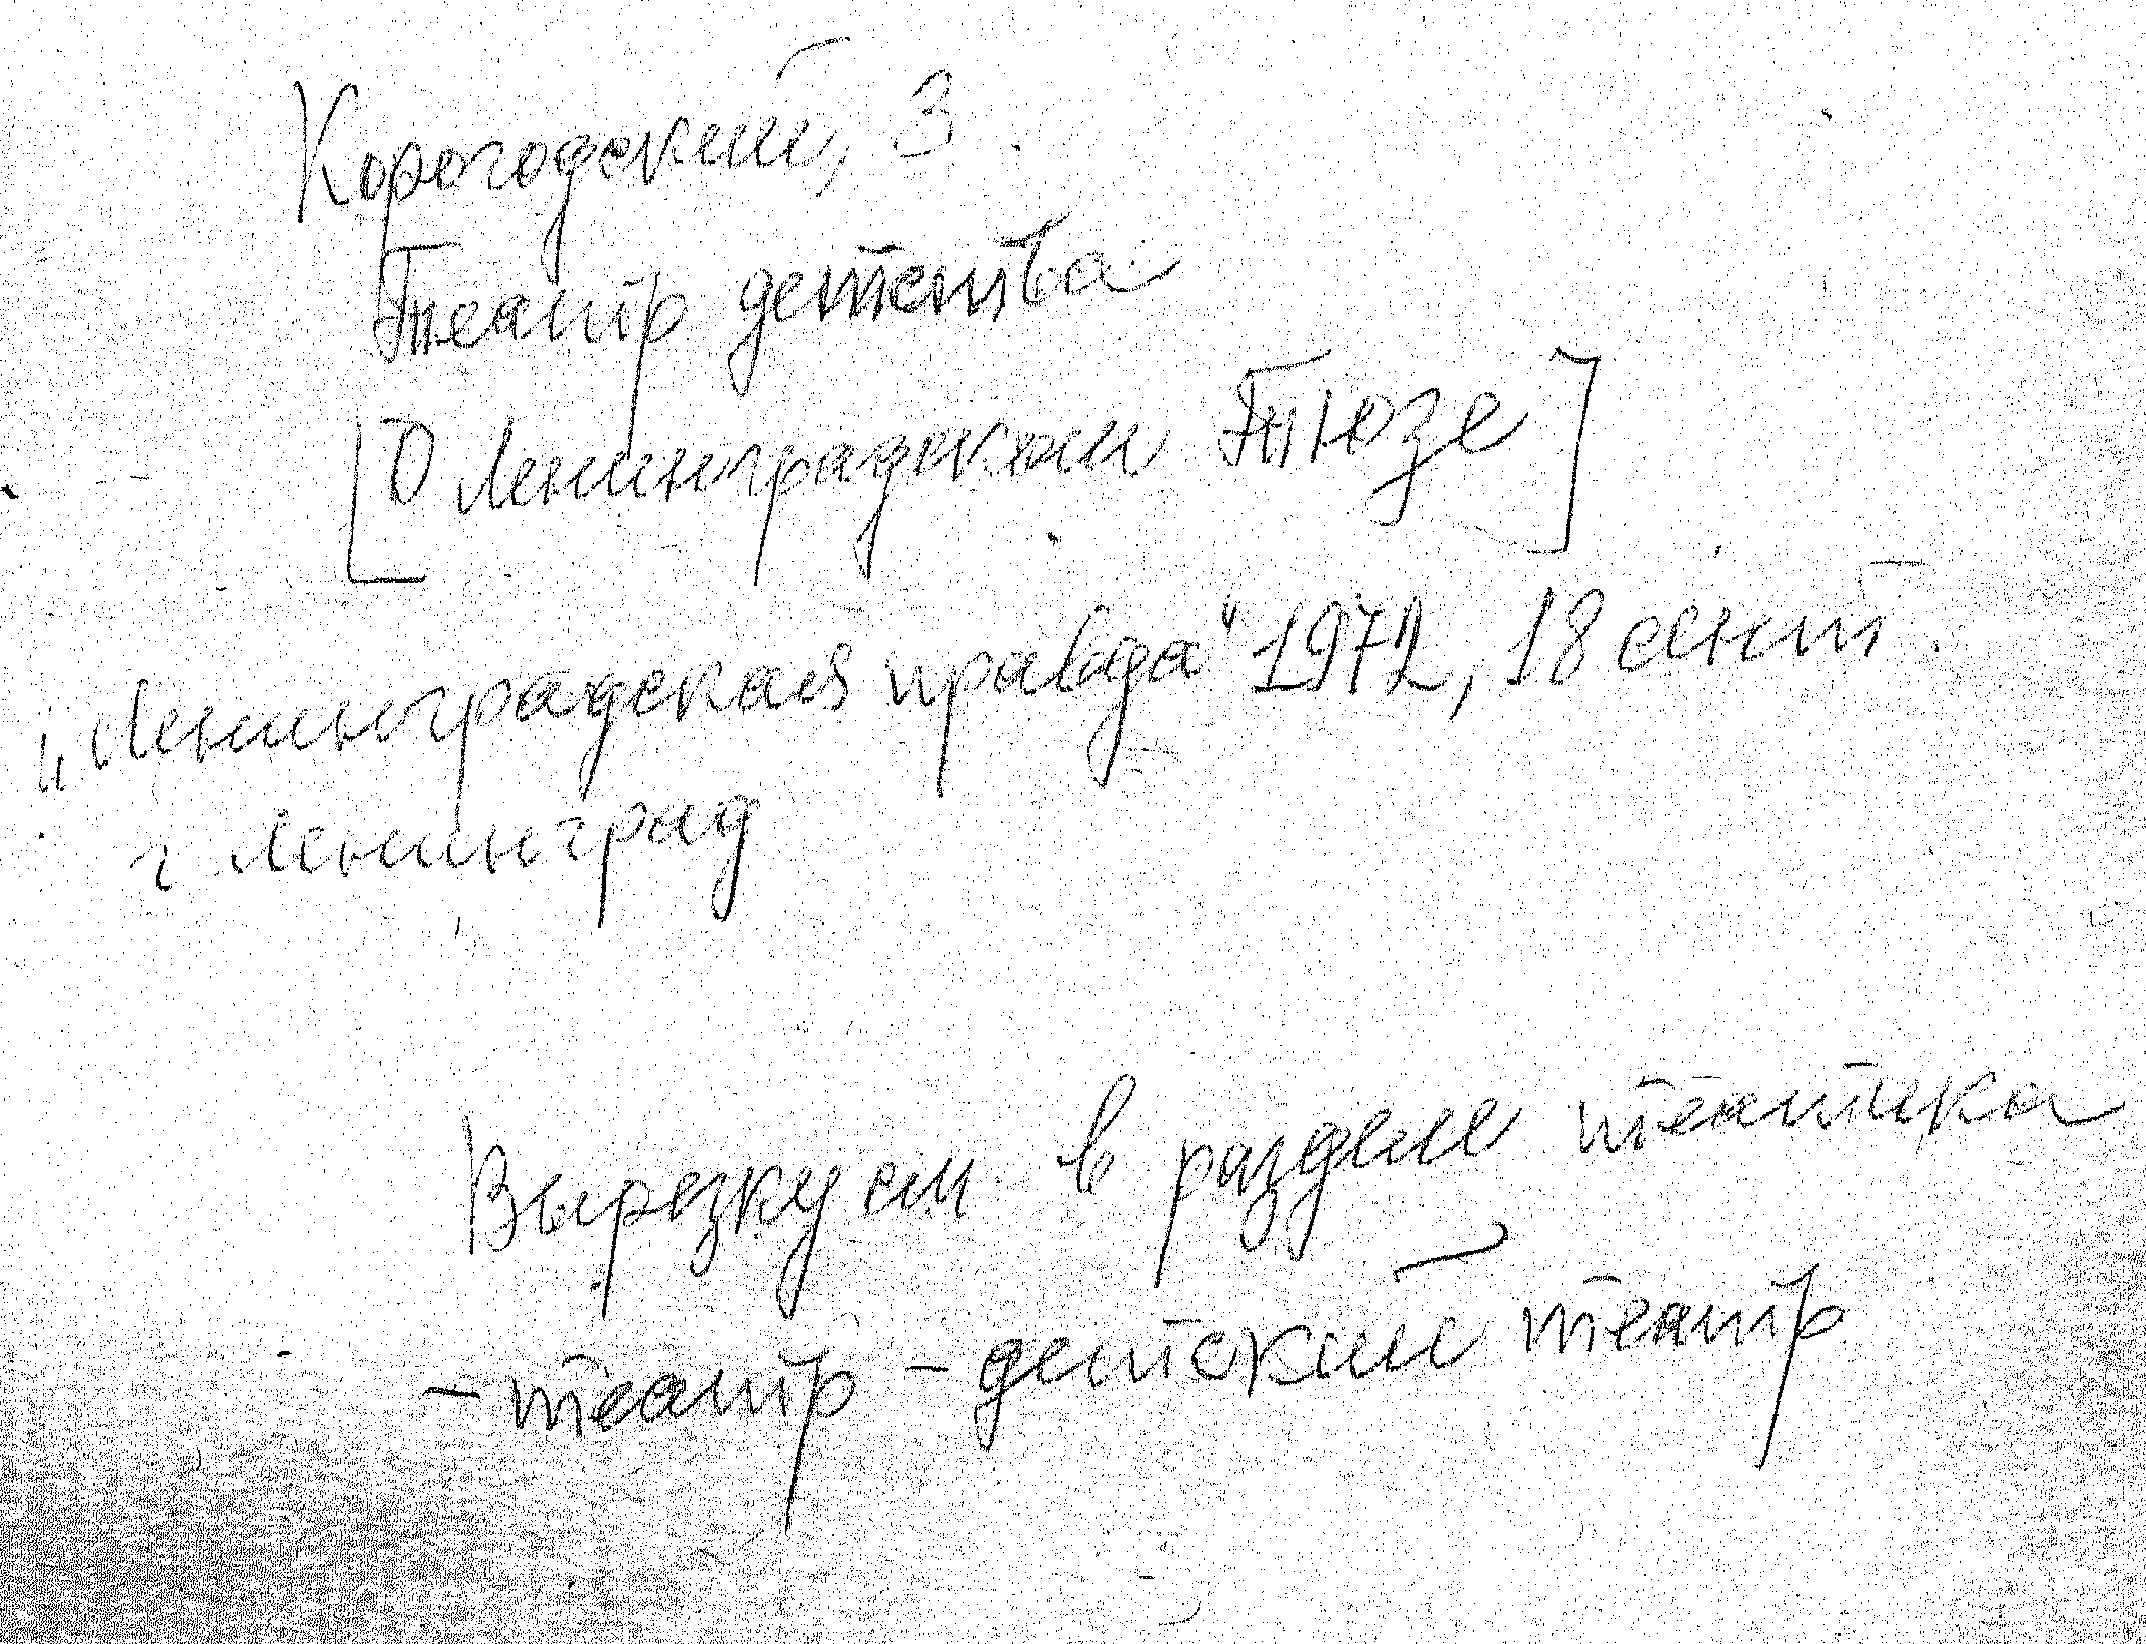 Корогодский, З.
Театр детства
[О Ленинградском Тюзе]
„Ленинградская правда" 1972, 18 сент.
г Ленинград
Вырезку см в разделе театика
- театр - детский театр